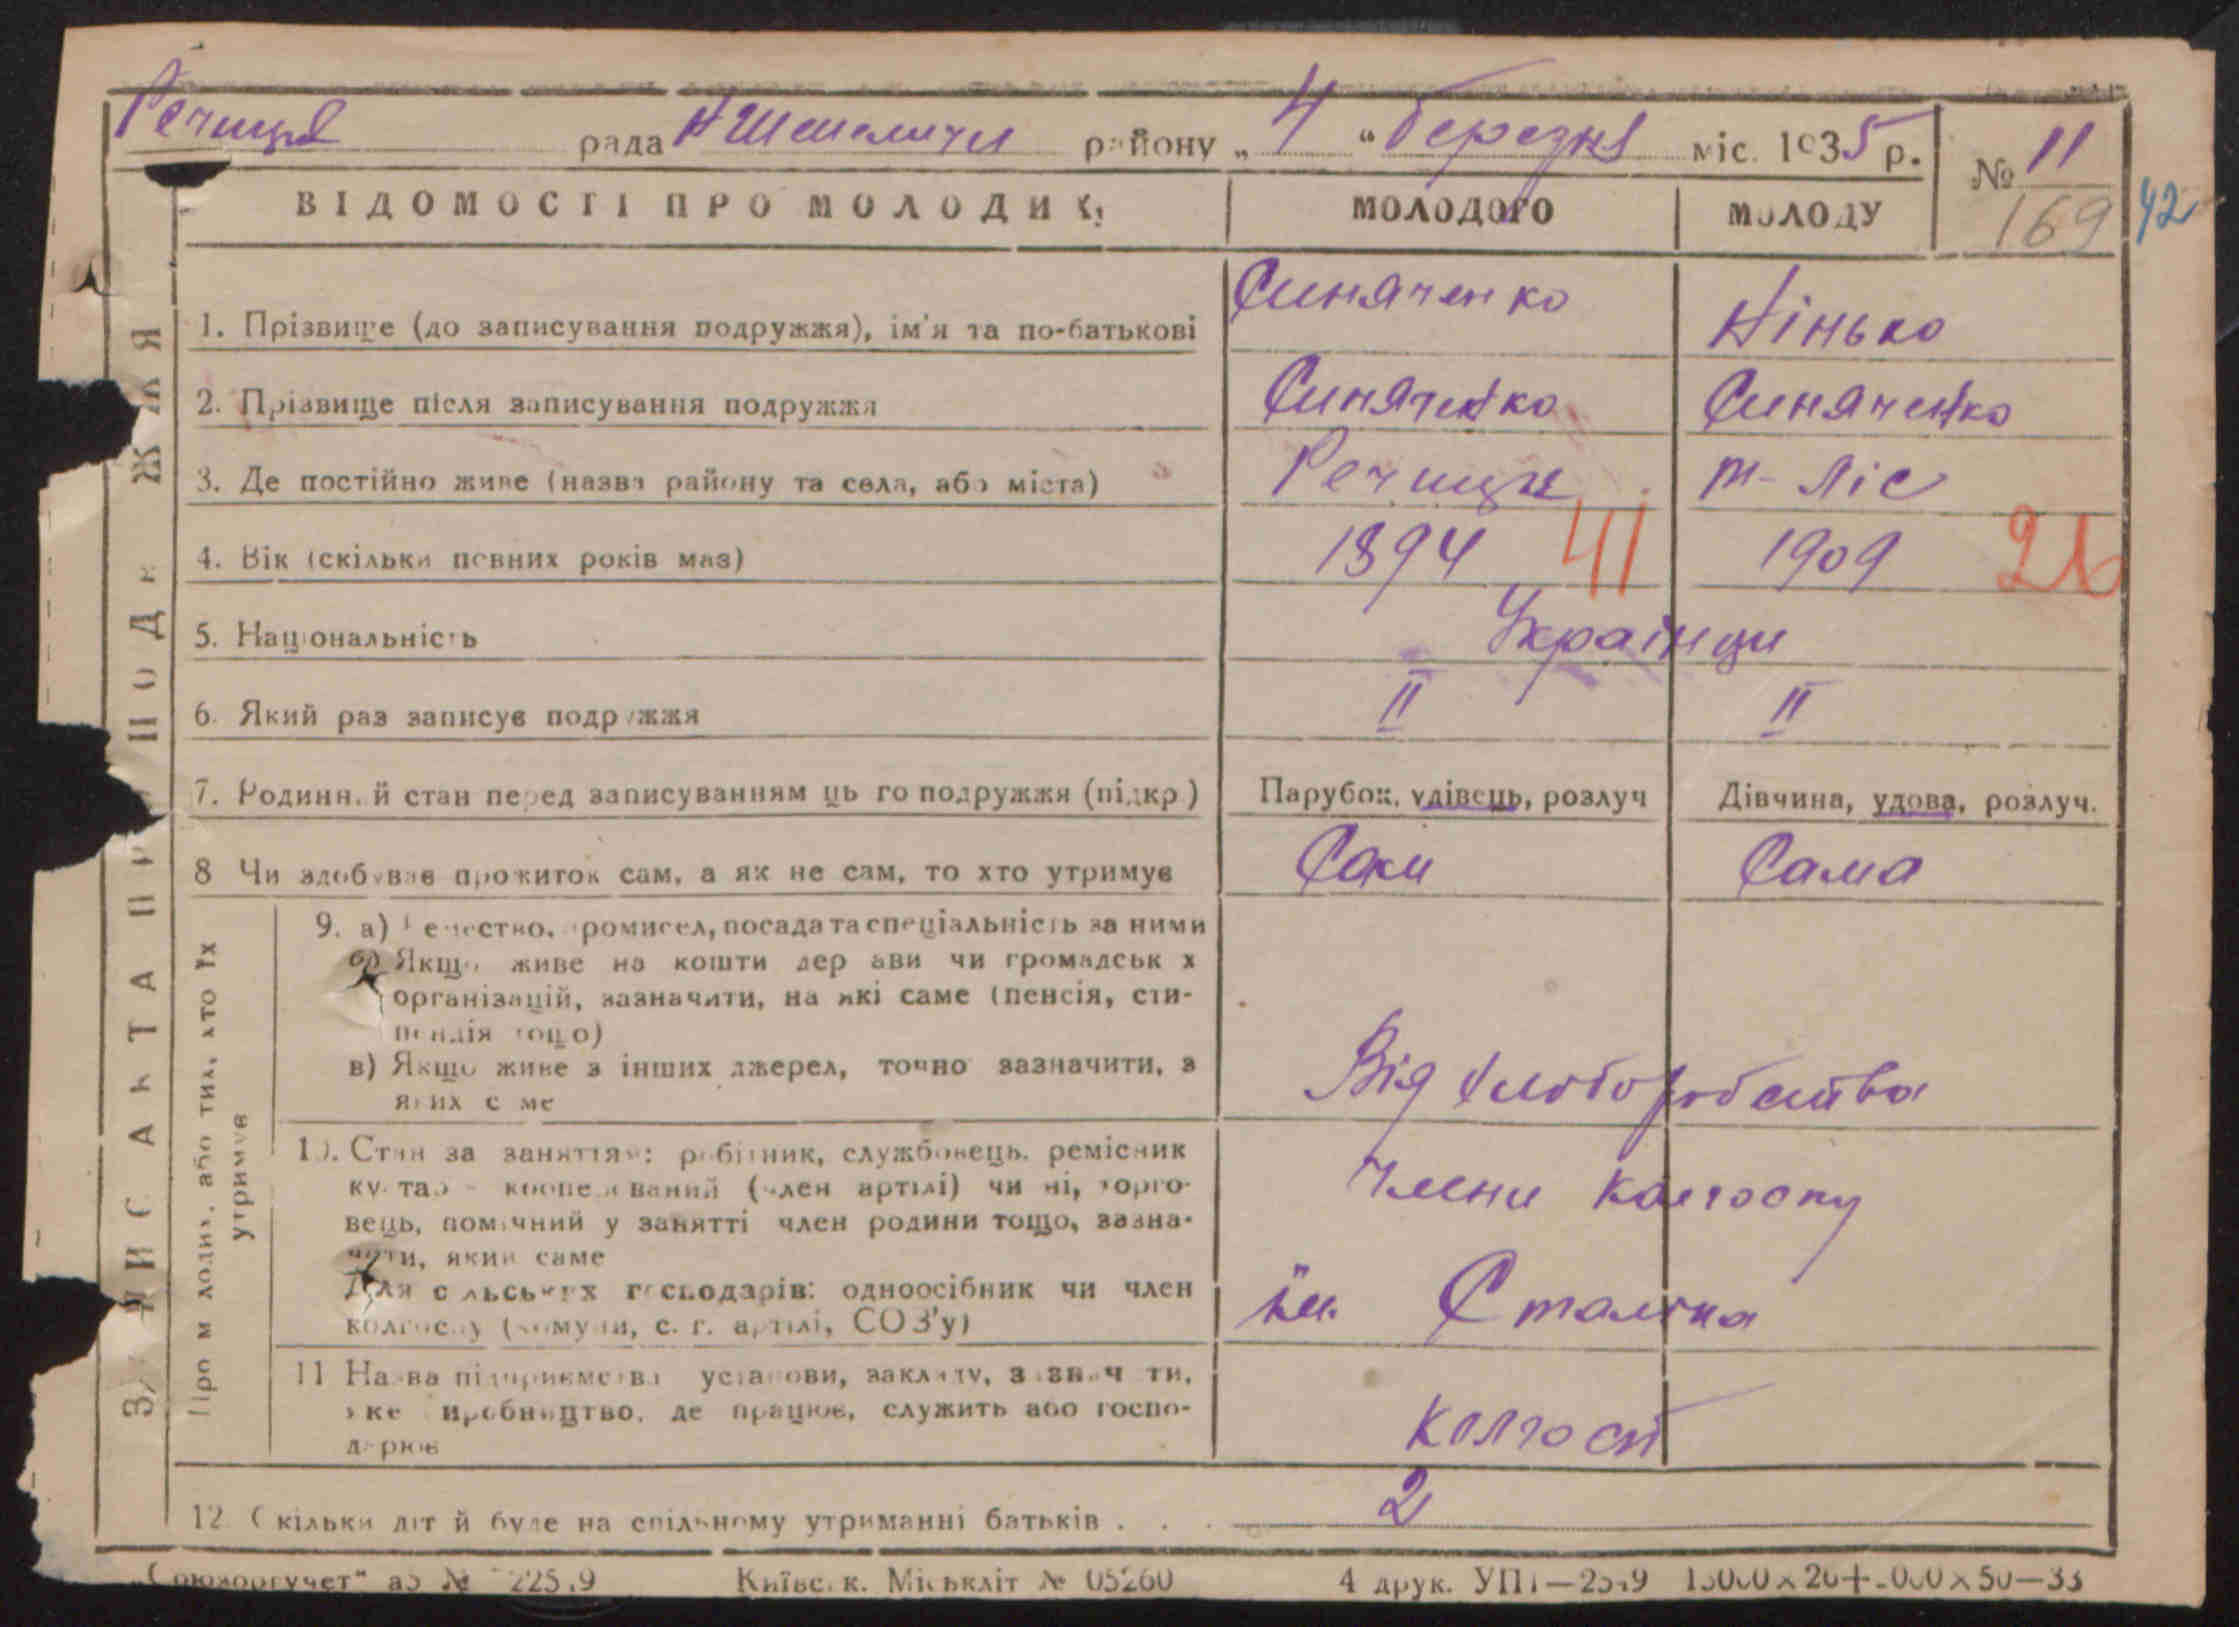 Речиця рада НШепеличи району „4“ березня міс. 1935 р. № 11
169 42
ВІДОМОСТІ ПРО МОЛОДИХ: МОЛОДОГО МОЛОДУ
ЗАПИС АКТА ПРО ПОДРУЖЖЯ
1. Прізвище (до записування подружжя), ім'я та по-батькові Синяченко Нінько
2. Прізвище після записування подружжя Синяченко Синяченко
3. Де постійно живе (назва району та села, або міста) Речиця Т-Ліс
4. Вік (скільки повних років має) 1894 41 1909 26
5. Національність Українци
6. Який раз записує подружжя II II
7. Родинний стан перед записуванням цього подружжя (підкр) Парубок, удівець, розлуч Дівчина, удова, розлуч.
8 Чи здобував прожиток сам, а як не сам, то хто утримує Сам Сама
Про молодих, або тих, хто їх утримує
9. а) ремество, промисел, посада та спеціальність за ними
б) Якщо живе на кошти держави чи громадських
організацій, зазначити, на які саме (пенсія, сти-
пендія тощо)
в) Якщо живе з інших джерел, точно зазначити, з
яких саме Від
10. Стан за заняттям: робітник, службовець, ремісник
кустар - кооперований (член артілі) чи ні, торго-
вець, помічний у занятті член родини тощо, зазна-
чити, який саме Члени колгоспу
Для сільських господарів: одноосібник чи член
колгоспу (комуни, с. г. артілі, СОЗ'у) ім. Сталіна
11 Назва підприємства установи, закладу, зазначити,
яке виробництво, де працює, служить або госпо-
дарює Колгосп
12. Скільки дітей буде на спільному утриманні батьків . . . 2
„Союзоргучет“ Київськ. Міськліт № 05260 4 друк. УПП